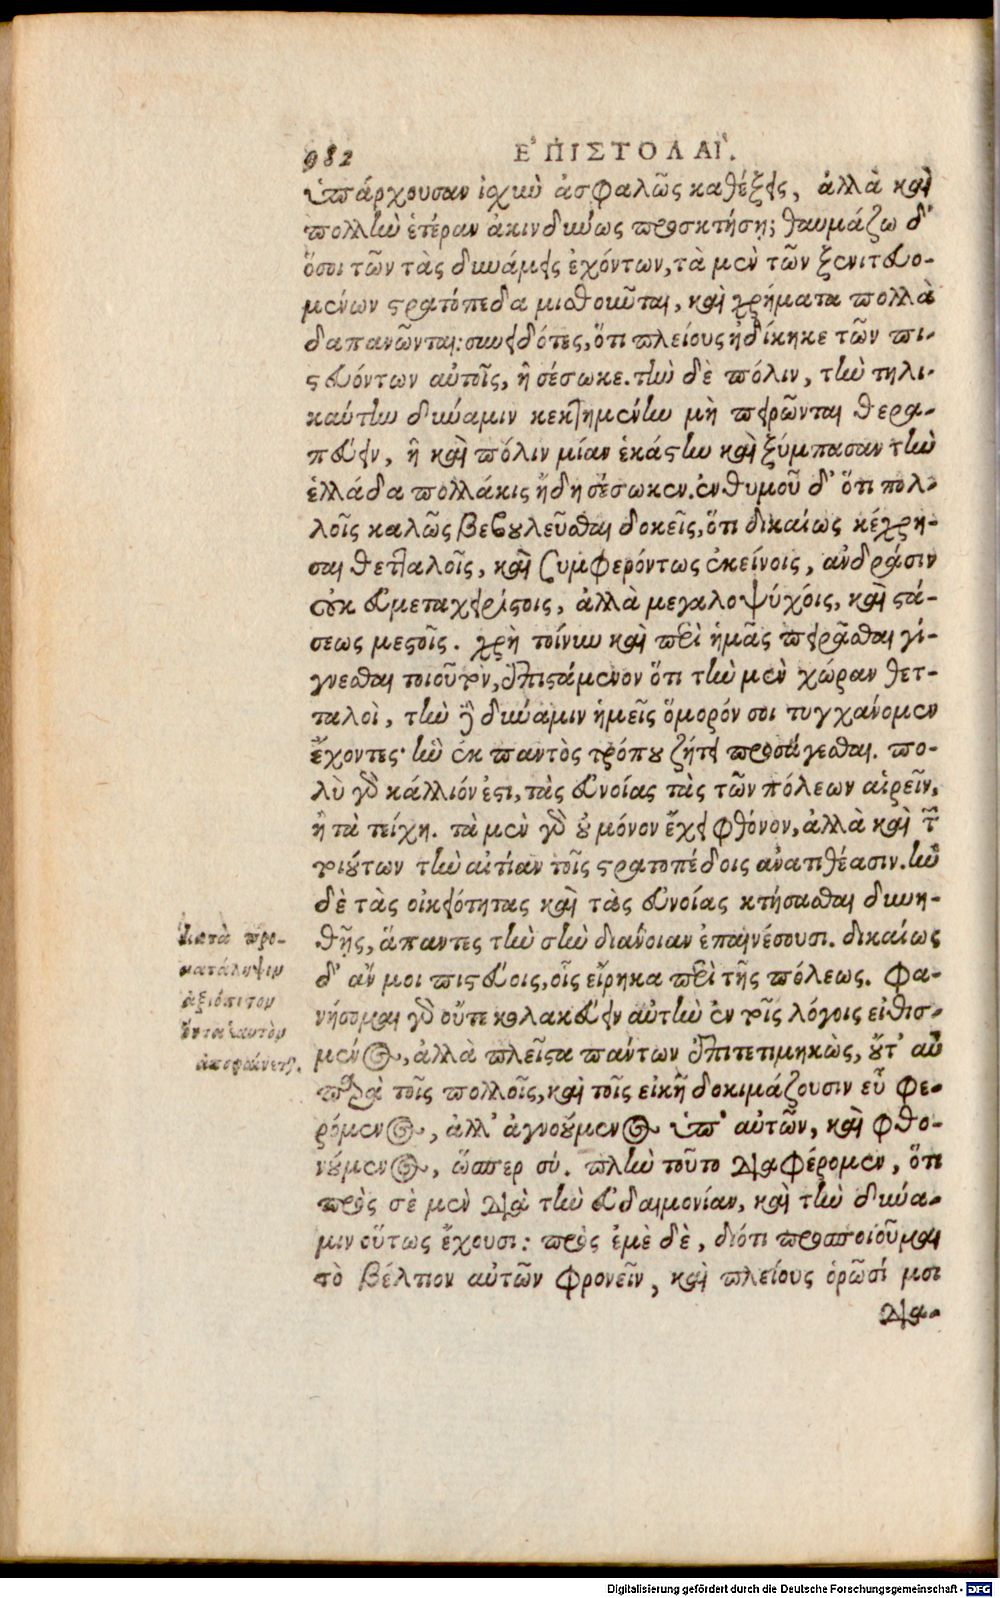 982
ἘΠΙΣΤΟΛΑΙ.
ὑπάρχουσαν ἰσχὺν ἀσφαλῶς καθέξεις, ἀλλὰ καὶ
πολλὴν ἑτέραν ἀκινδύνως προσκτήσῃ; θαυμάζω δ'
ὅσοι τῶν τὰς δυνάμεις ἐχόντων, τὰ μὲν τῶν ξενιτευο-
μένων στρατόπεδα μισθοῦνται, καὶ χρήματα πολλὰ
δαπανῶνται: συνειδότες, ὅτι πλείους ἠδίκηκε τῶν πι-
στευόντων αὐτοῖς, ἢ σέσωκε. τὴν δὲ πόλιν, τὴν τηλι-
καύτην δύναμιν κεκτημένην μὴ πειρῶνται θερα-
πεύειν, ἣ καὶ πόλιν μίαν ἑκάστην καὶ ξύμπασαν τὴν
ἑλλάδα πολλάκις ἤδη σέσωκεν. ἐνθυμοῦ δ' ὅτι πολ-
λοῖς καλῶς βεβουλεῦσθαι δοκεῖς, ὅτι δικαίως κέχρη-
σαι θετταλοῖς, καὶ συμφερόντως ἐκείνοις, ἀνδράσιν
οὐκ εὐμεταχειρίστοις, ἀλλὰ μεγαλοψύχοις, καὶ στά-
σεως μεστοῖς. χρὴ τοίνυν καὶ περὶ ἡμᾶς πειρᾶσθαι γί-
γνεσθαι τοιοῦτον, ἐπιστάμενον ὅτι τὴν μὲν χώραν θετ-
ταλοὶ, τὴν δὲ δύναμιν ἡμεῖς ὅμορόν σοι τυγχάνομεν
ἔχοντες· ἣν ἐκ παντὸς τρόπου ζήτει προσάγεσθαι. πο-
λὺ γὰρ κάλλιόν ἐστι, τὰς εὐνοίας τὰς τῶν πόλεων αἱρεῖν,
ἢ τὰ τείχη. τὰ μὲν γὰρ οὐ μόνον ἔχει φθόνον, ἀλλὰ καὶ τῶν
τοιούτων τὴν αἰτίαν τοῖς στρατοπέδοις ἀνατιθέασιν. ἢν
δὲ τὰς οἰκειότητας καὶ τὰς εὐνοίας κτήσασθαι δυνη-
θῇς, ἅπαντες τὴν σὴν διάνοιαν ἐπαινέσουσι. δικαίως
δ' ἄν μοι πιστεύοις, οἷς εἴρηκα περὶ τῆς πόλεως. φα-
νήσομαι γὰρ οὔτε κολακεύειν αὐτὴν ἐν τοῖς λόγοις εἰθισ-
μένος, ἀλλὰ πλεῖστα πάντων ἐπιτετιμηκὼς, οὔτ' αὖ
παρὰ τοῖς πολλοῖς, καὶ τοῖς εἰκῆ δοκιμάζουσιν εὖ φε-
ρόμενος, ἀλλ' ἀγνοούμενος ὑπ' αὐτῶν, καὶ φθο-
νούμενος, ὥσπερ σύ. πλὴν τοῦτο διαφέρομεν, ὅτι
πρὸς σὲ μὲν διὰ τὴν εὐδαιμονίαν, καὶ τὴν δύνα-
μιν οὕτως ἔχουσι: πρὸς ἐμὲ δὲ, διότι προσποιοῦμαι
τὸ βέλτιον αὐτῶν φρονεῖν, καὶ πλείους ὁρῶσί μοι
δια-
κατὰ προ-
κατάληψιν
ἀξιόπιστον
ὄντα ἑαυτὸν
ἀποφαίνεται.
Digitalisierung gefördert durch die Deutsche Forschungsgemeinschaft - DFG